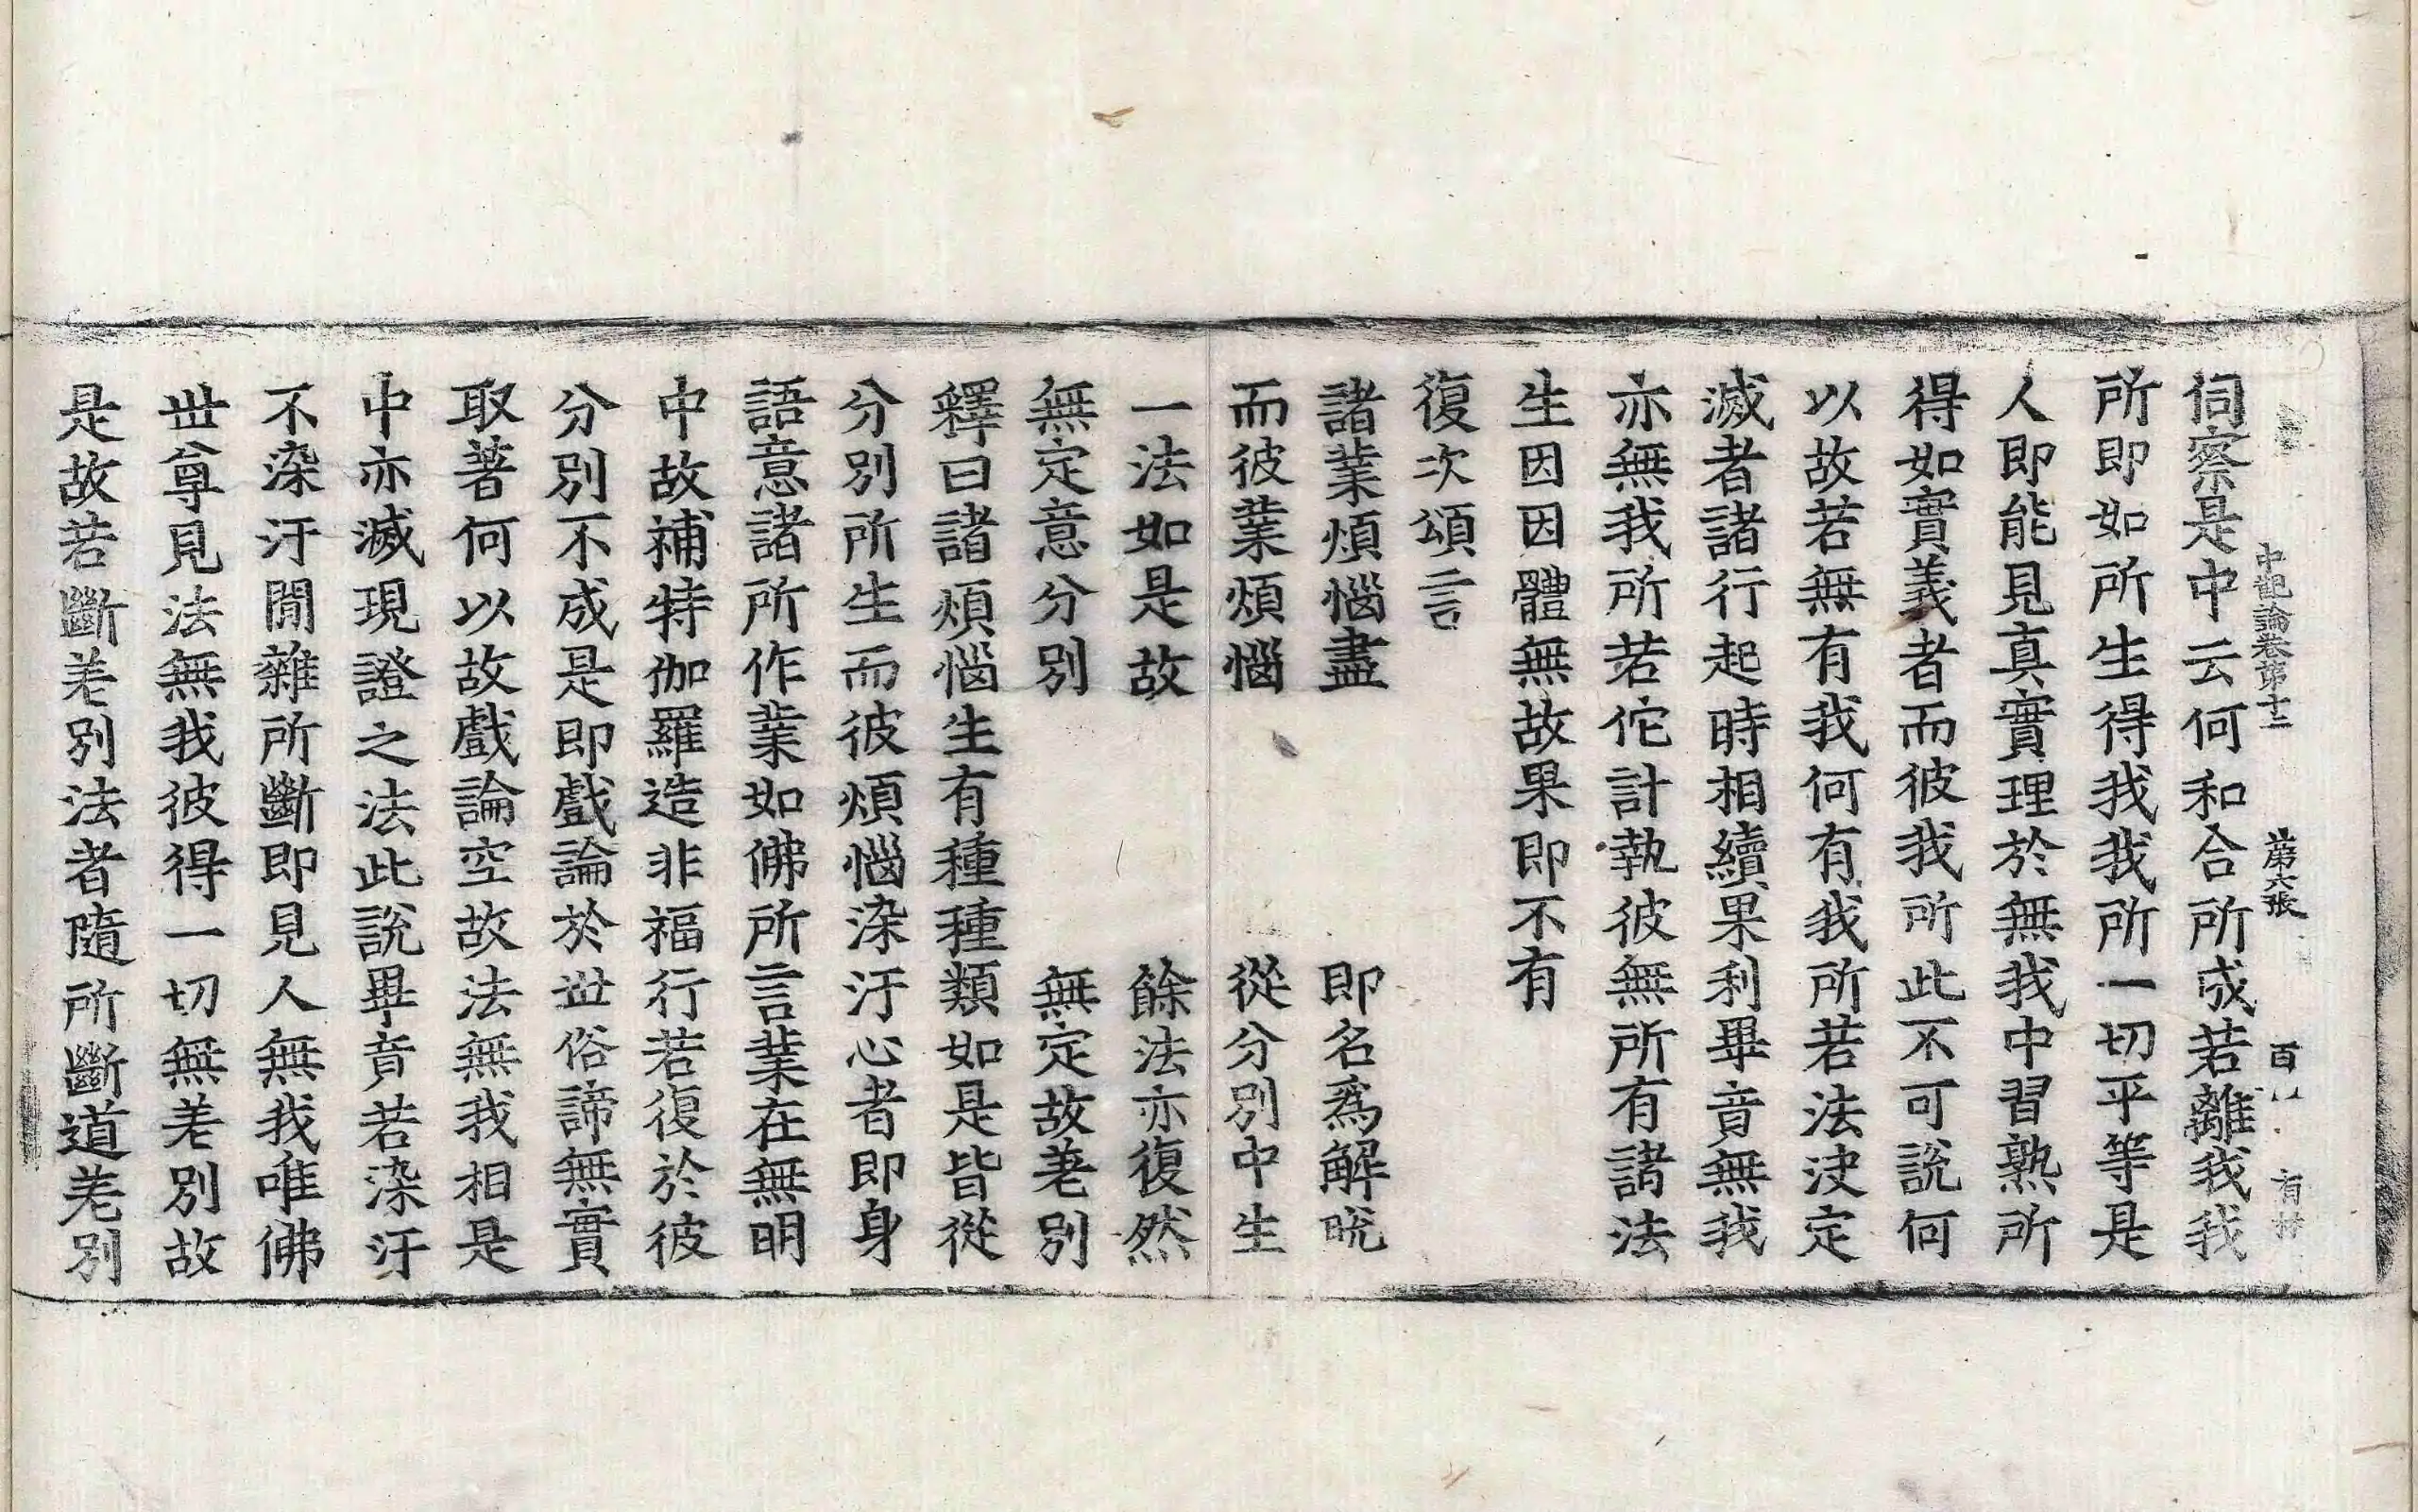 中觀論卷第十二 第六張 百
伺察是中云何和合所成若離我我
所即如所生得我我所一切平等是
人即能見真實理於無我中習熟所
得如實義者而彼我所此不可說何
以故若無有我何有我所若法決定
滅者諸行起時相續果利畢竟無我
亦無我所若佗計執彼無所有諸法
生因因體無故果即不有
復次頌言
諸業煩惱盡 即名為解脫
而彼業煩惱 從分別中生
一法如是故 餘法亦復然
無定意分別 無定故差別
釋曰諸煩惱生有種種類如是皆從
分別所生而彼煩惱染汙心者即身
語意諸所作業如佛所言業在無明
中故補特伽羅造非福行若復於彼
分別不成是即戲論於世俗諦無實
取著何以故戲論空故法無我相是
中亦滅現證之法此說畢竟若染汙
不染汙間雜所斷即見人無我唯佛
世尊見法無我彼得一切無差別故
是故若斷差別法者隨所斷道差別